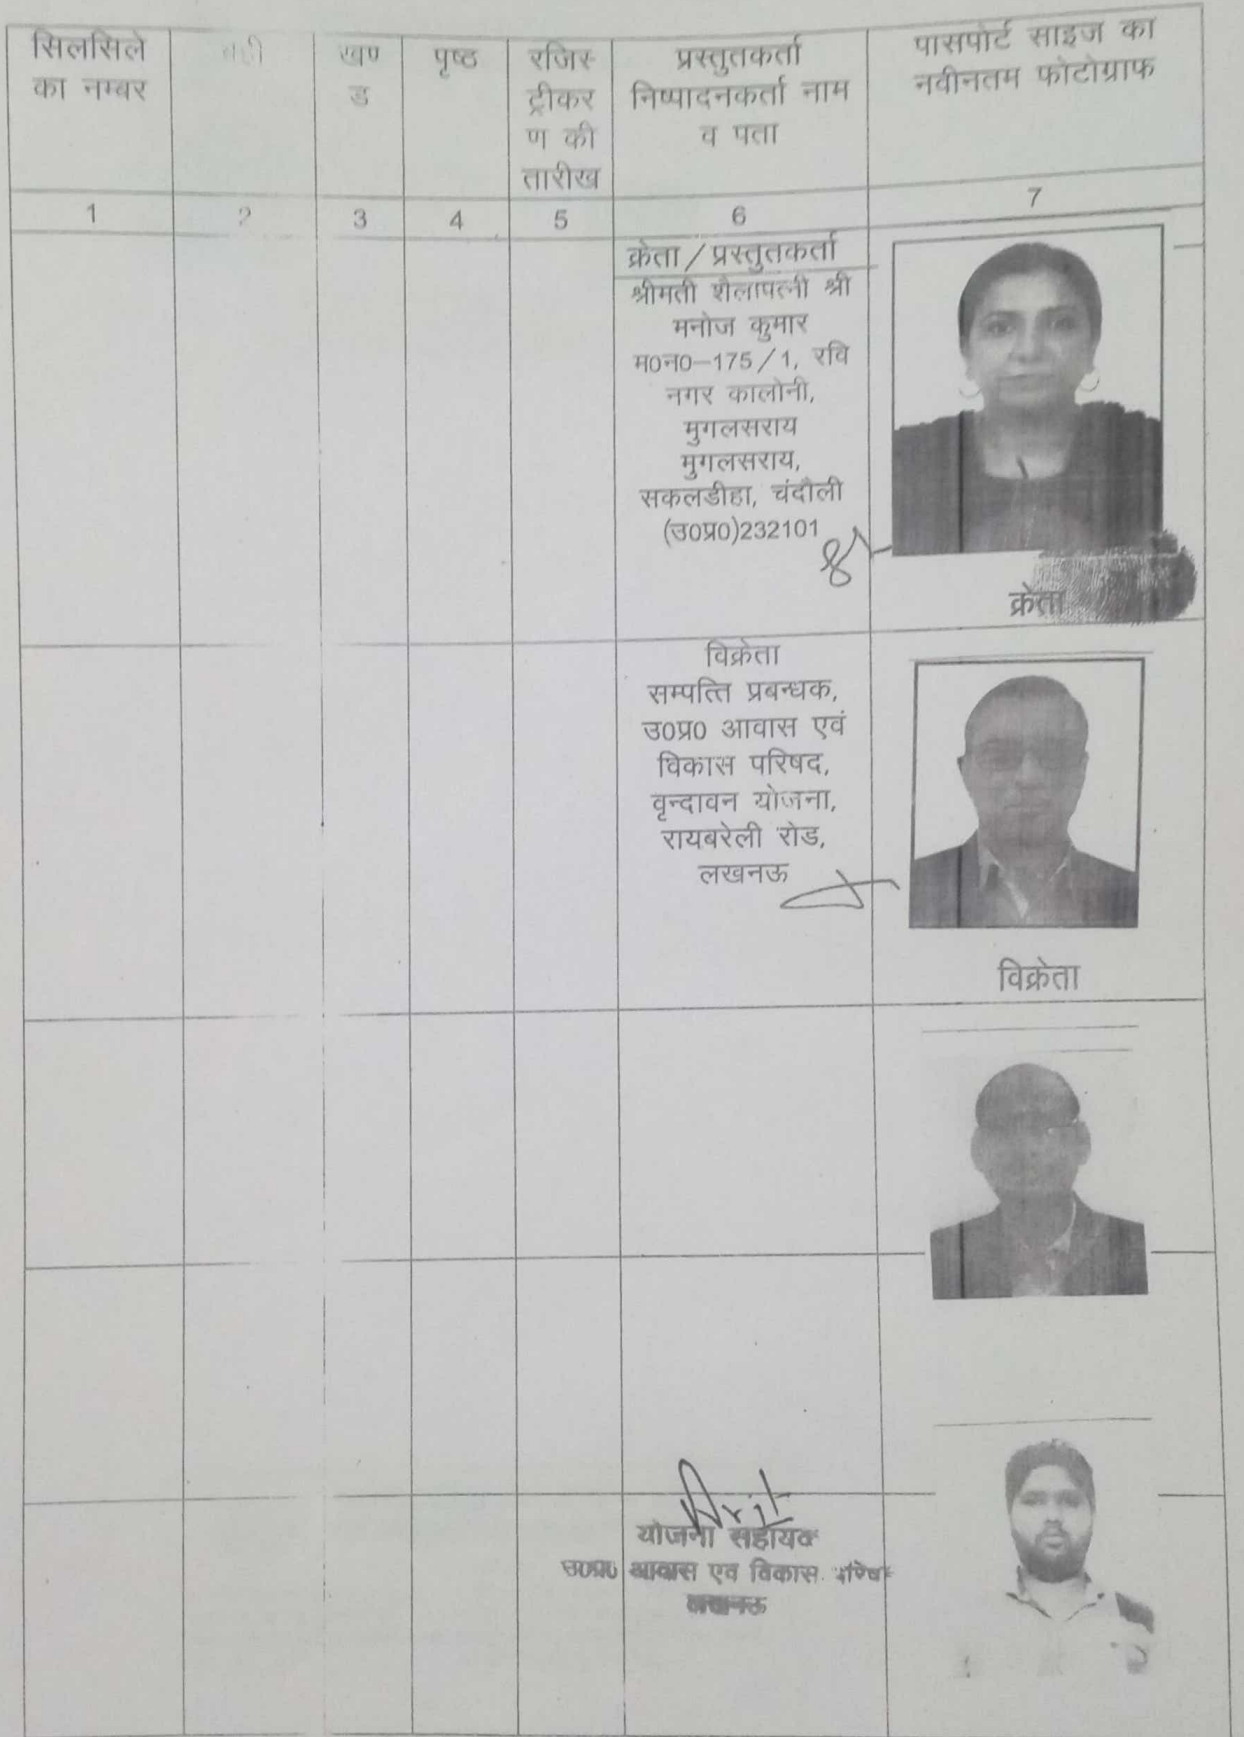 सिलसिले
का नम्बर
बही
खण
ड
पृष्ठ
रजिस्
ट्रीकर
ण की
तारीख
प्रस्तुतकर्ता
निष्पादनकर्ता नाम
व पता
पासपोर्ट साइज का
नवीनतम फोटोग्राफ
1
2
3
4
5
6
7
क्रेता / प्रस्तुतकर्ता
श्रीमती शैलापत्नी श्री
मनोज कुमार
म0न0–175 / 1, रवि
नगर कालोनी,
मुगलसराय
मुगलसराय,
सकलडीहा, चंदौली
(उ0प्र0)232101
क्रेता
विक्रेता
सम्पत्ति प्रबन्धक,
उ0प्र0 आवास एवं
विकास परिषद,
वृन्दावन योजना,
रायबरेली रोड,
लखनऊ
विक्रेता
योजना सहायक
उ0प्र0 आवास एव विकास
लखनऊ